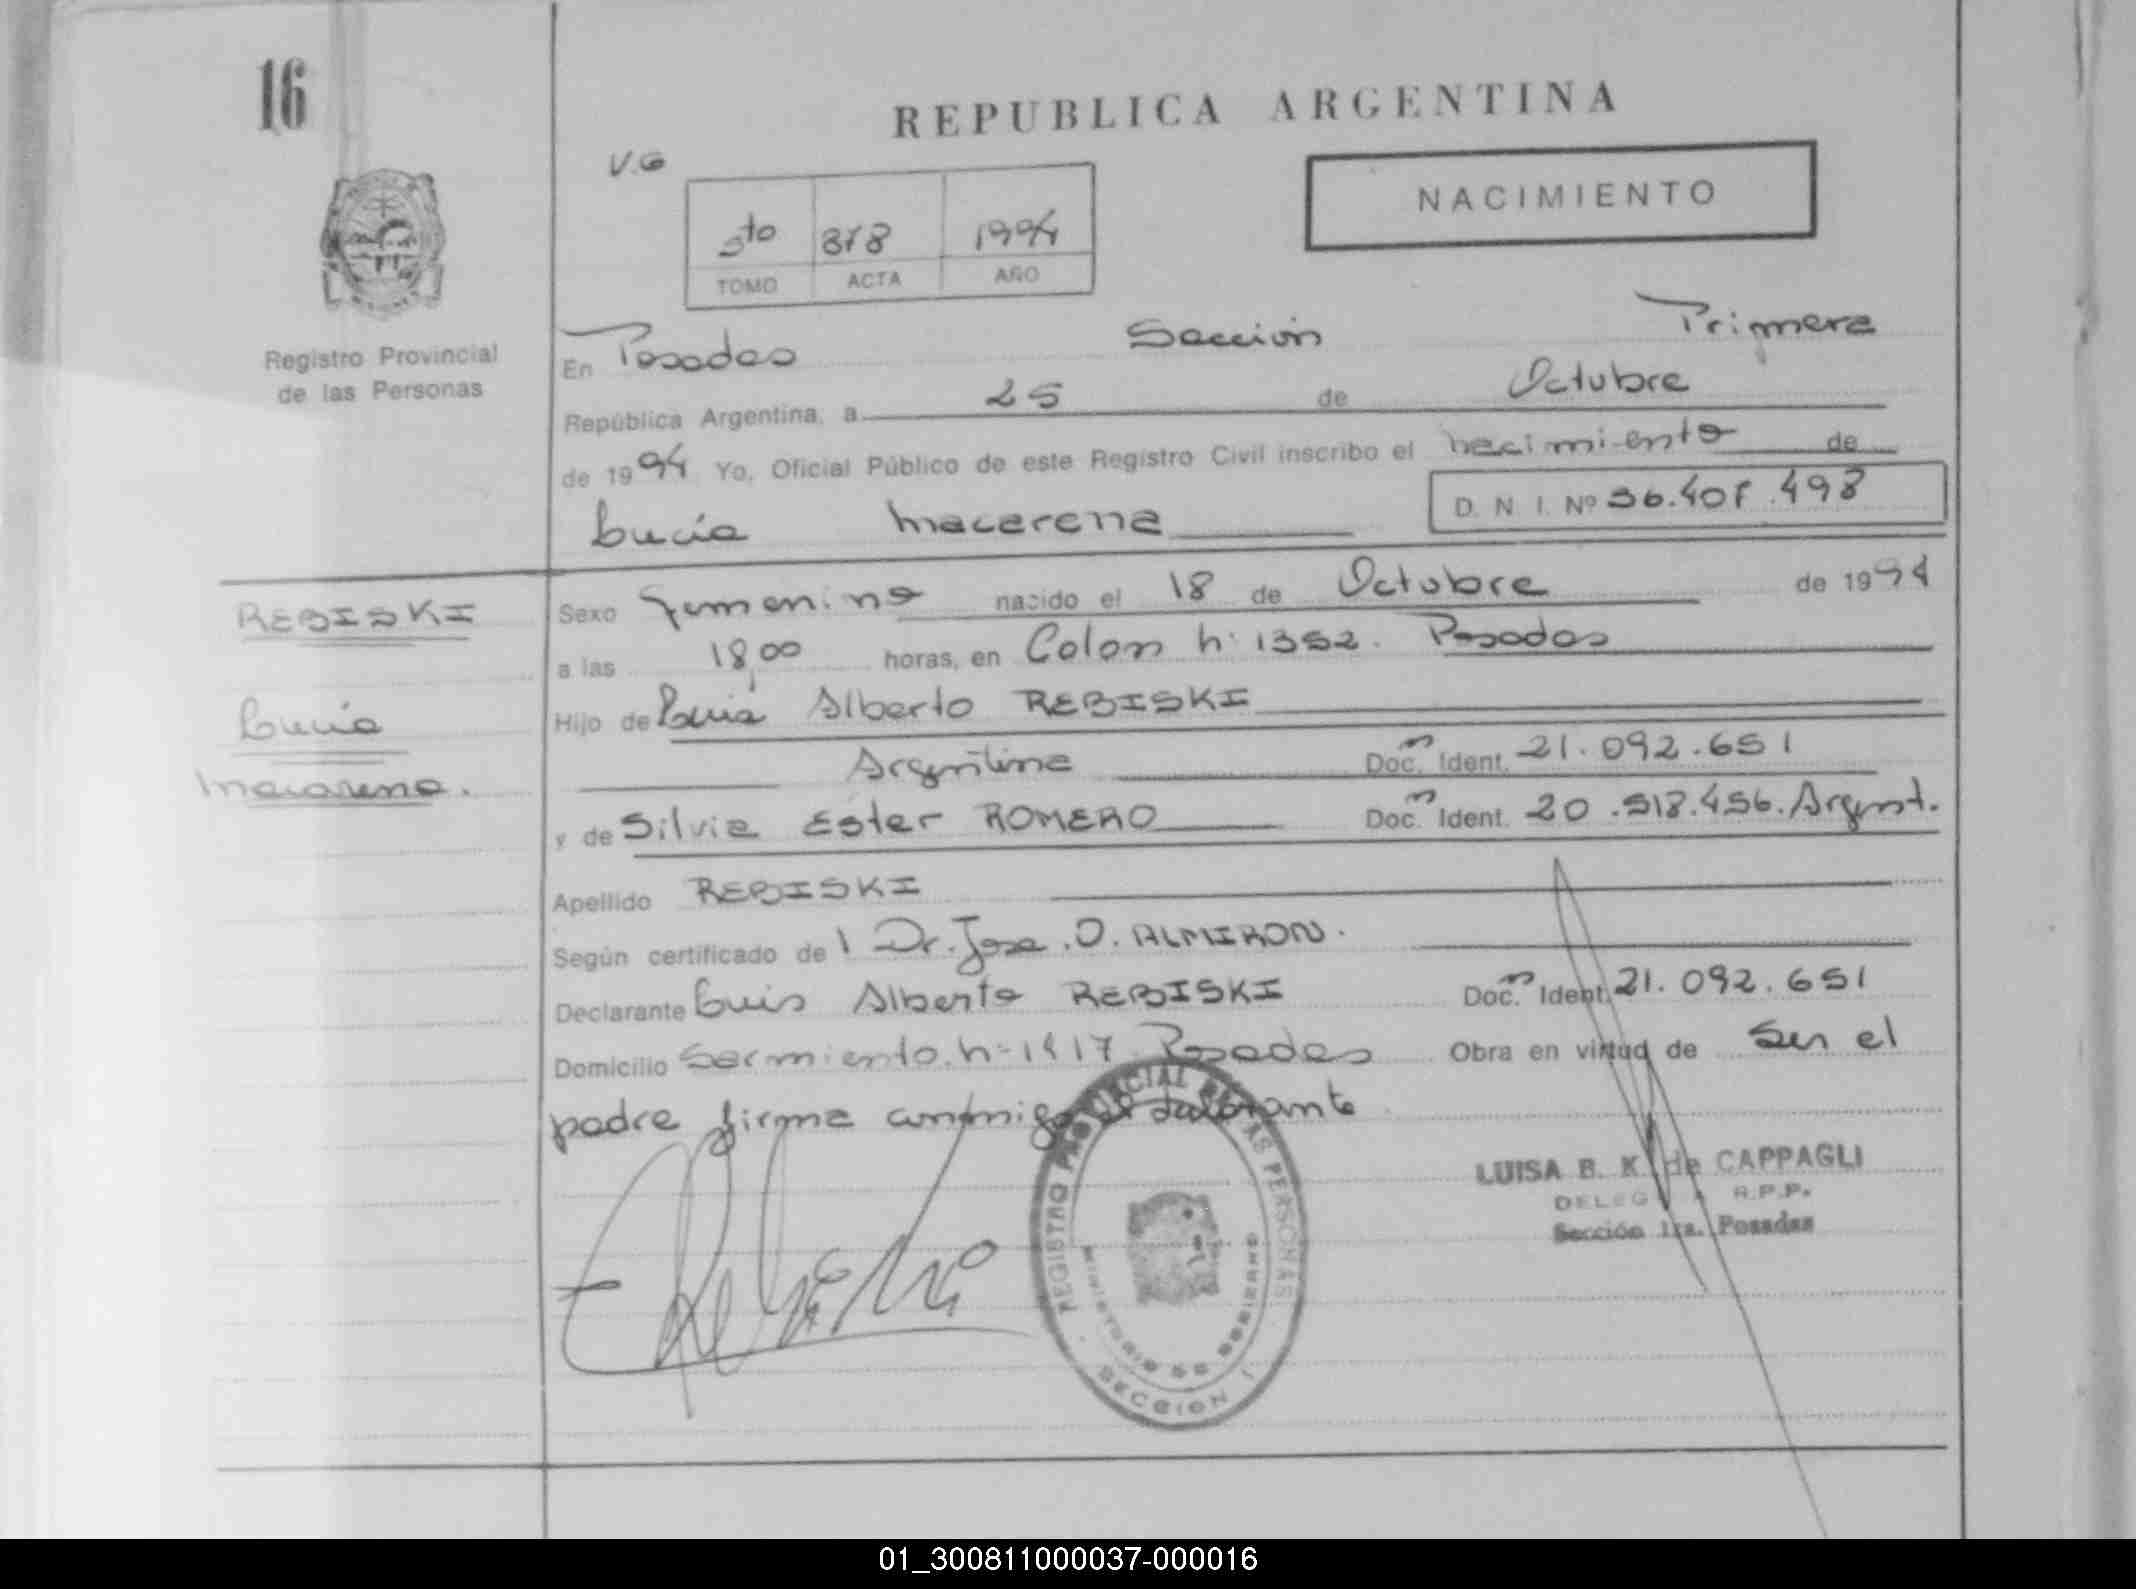 16
REPUBLICA ARGENTINA
V.G
NACIMIENTO
5to 1994
TOMO ACTA AÑO
Registro Provincial
de las Personas
En Posadas Sección Primera
República Argentina, a 25 de Octubre
de 1994 Yo, Oficial Público de este Registro Civil inscribo el nacimiento de
Lucía Macarena D. N. I. Nº
REBISKI
Lucía
Macarena.
Sexo femenino nacido el 18 de Octubre de 1994
a las 18,00 horas, en Colon n: 1352. Posadas
Hijo de Luis Alberto REBISKI
Argentina Doc. Ident. 21.092.651
y de Silvia Ester ROMERO Doc. Ident. 20.518.456. Argent.
Apellido REBISKI
Según certificado de l Dr. Jose .O. ALMIRON.
Declarante Luis Alberto REBISKI Doc. Ident. 21.092.651
Domicilio Sarmiento. n= 1417 Posadas Obra en virtud de Ser el
padre firma conmigo el declarante
REGISTRO PROVINCIAL DE LAS PERSONAS
MINISTERIO DE GOBIERNO
SECCION 1
LUISA B. K. de CAPPAGLI
R.P.P.
Sección 1ra. Posadas
01_300811000037-000016